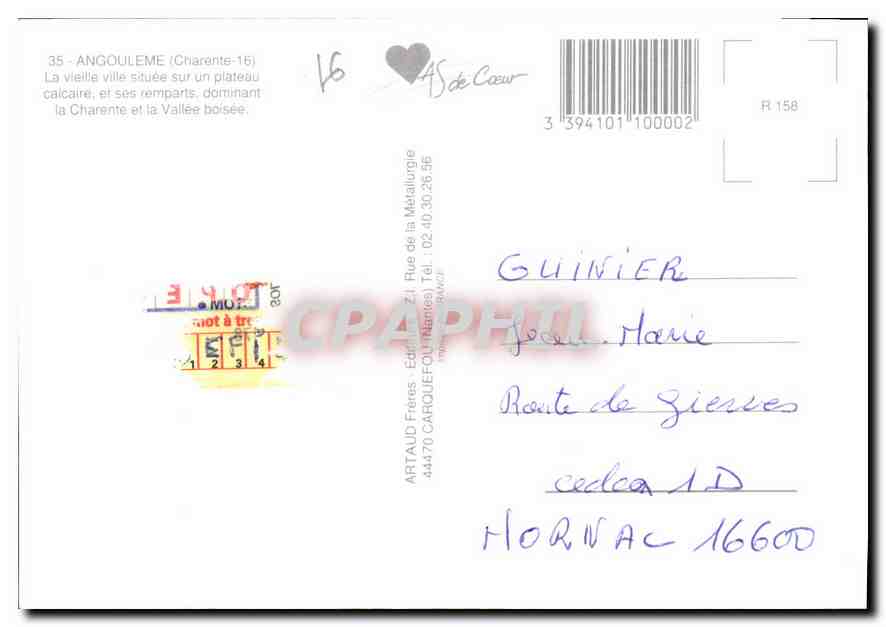 35 - ANGOULEME (Charente-16)
La vieille ville située sur un plateau
calcaire, et ses remparts, dominant
la Charente et la Vallée boisée.
16
AS de Cœur
3 394101 100002
R 158
ARTAUD Frères - Editeurs - Z.I. Rue de la Métallurgie
44470 CARQUEFOU (Nantes) Tél. : 02.40.30.26.56
FRANCE
MOT
SOL
mot à tro
1 2 3 4
CPAPHIL
GUINIER
Jean Marie
Route de
cedex 1D
MORNAC 16600